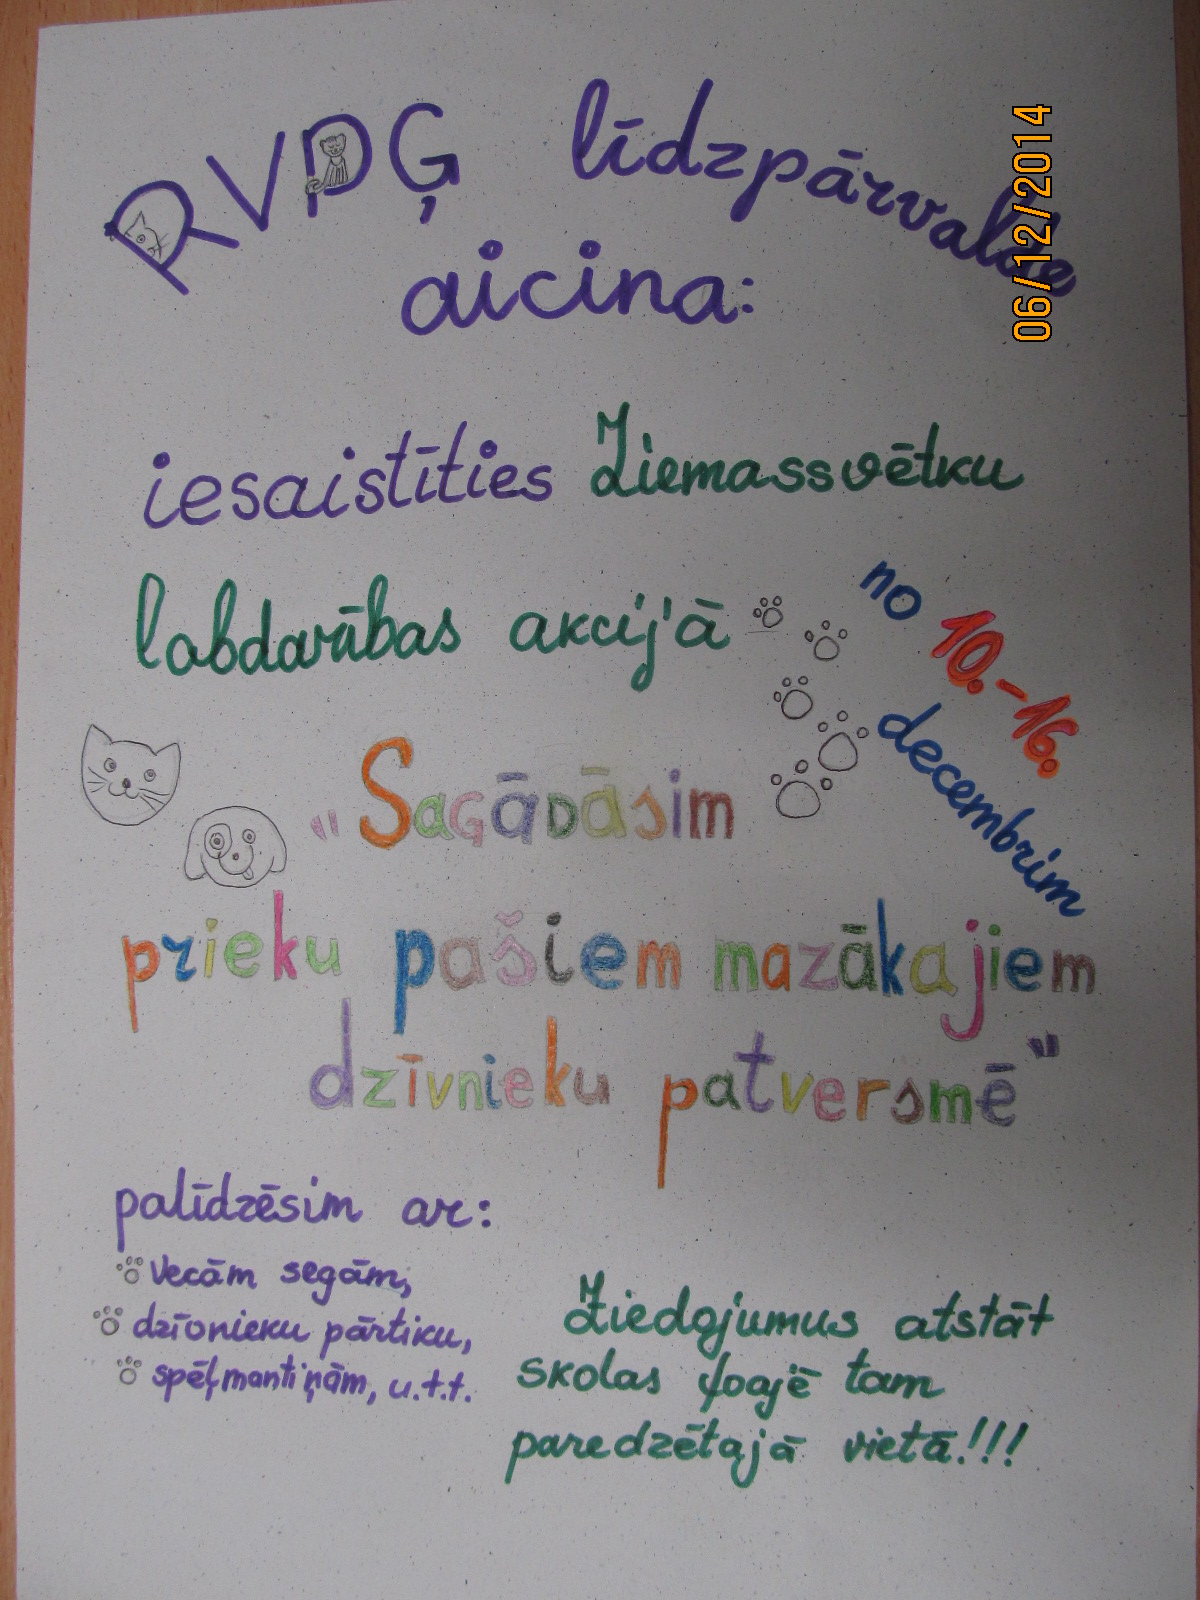 RVPĢ līdzpārvalde
aicina:
iesaistīties Ziemassvētku
labdarības akcijā
no 10.-16.
decembrim
"Sagādāsim
prieku pašiem mazākajiem
dzīvnieku patversmē"
palīdzēsim ar:
vecām segām,
dzīvnieku pārtiku,
spēļmantiņām, u.t.t.
Ziedojumus atstāt
skolas foajē tam
paredzētajā vietā!!!
06/12/2014